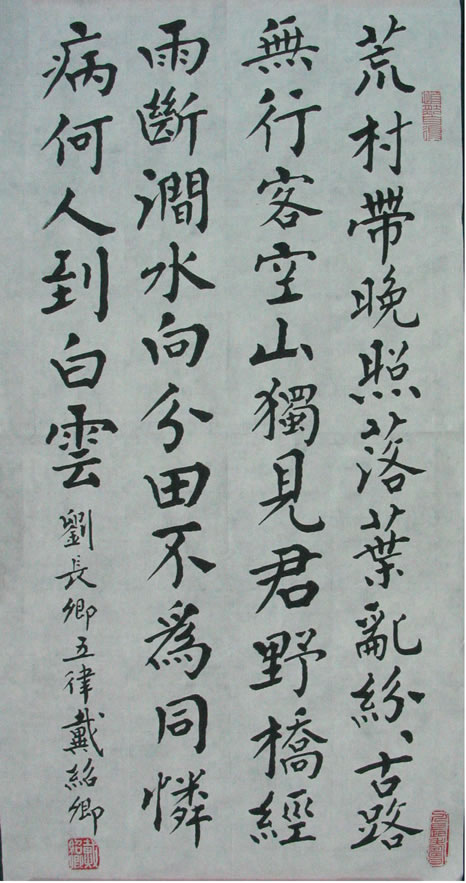 荒村帶晚照落葉亂紛、古路
無行客空山獨見君野橋經
雨斷澗水向分田不爲同憐
病何人到白雲 劉長卿五律戴紹卿